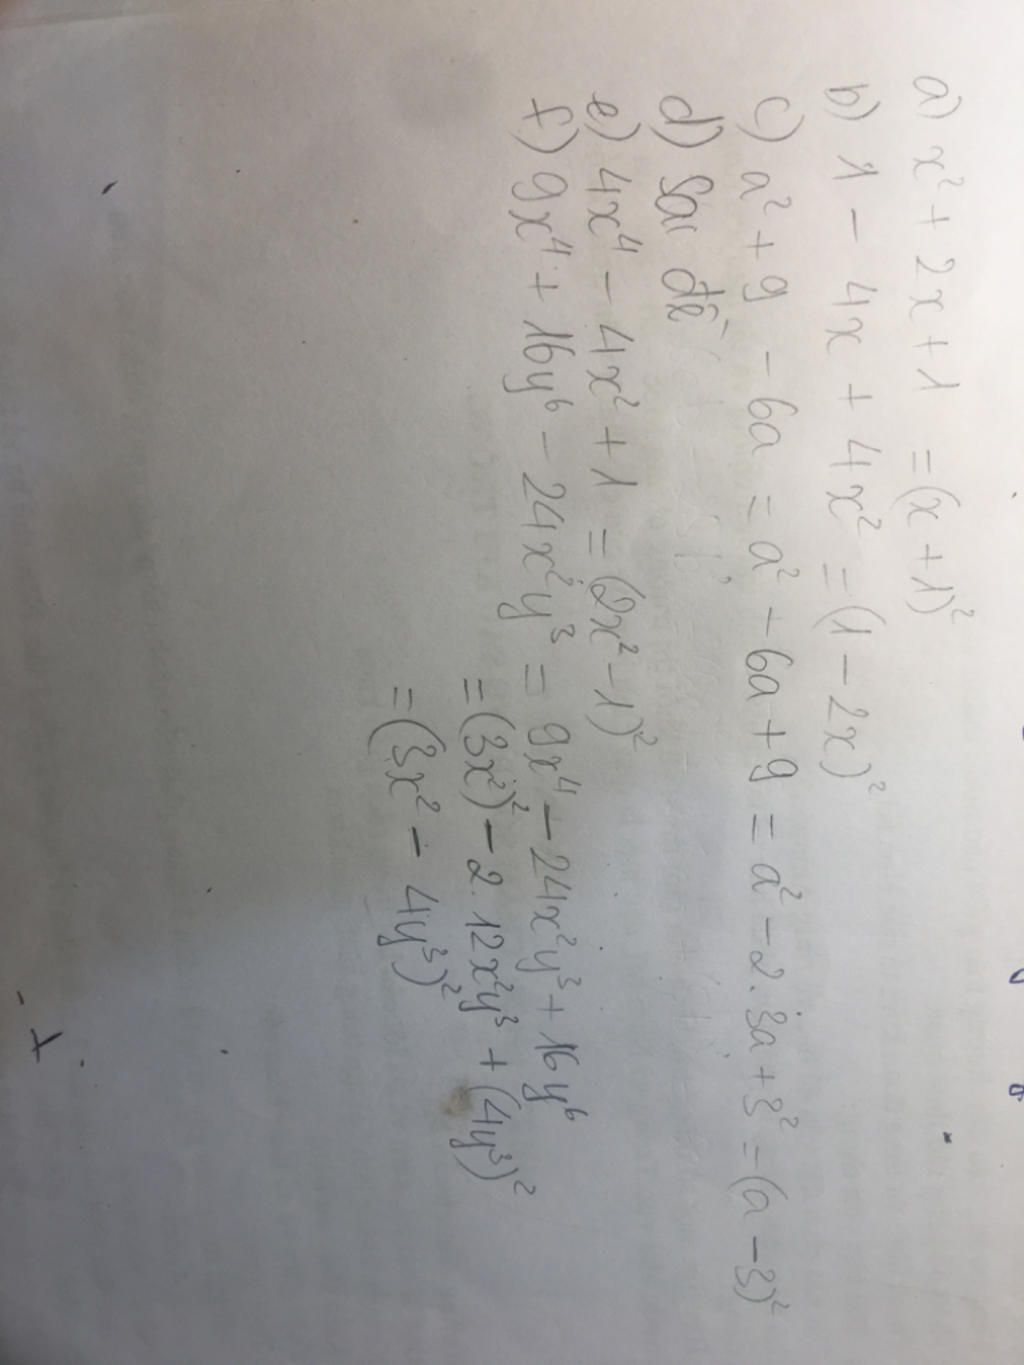 a) x² + 2x + 1 = (x + 1)²
b) 1 - 4x + 4x² = (1 - 2x)²
c) a² + 9 - 6a = a² - 6a + 9 = a² - 2.3a + 3² = (a - 3)²
d) Sai đề
e) 4x⁴ - 4x² + 1 = (2x² - 1)²
f) 9x⁴ + 16y⁶ - 24x²y³ = 9x⁴ - 24x²y³ + 16y⁶
= (3x²)² - 2.12x²y³ + (4y³)²
= (3x² - 4y³)²